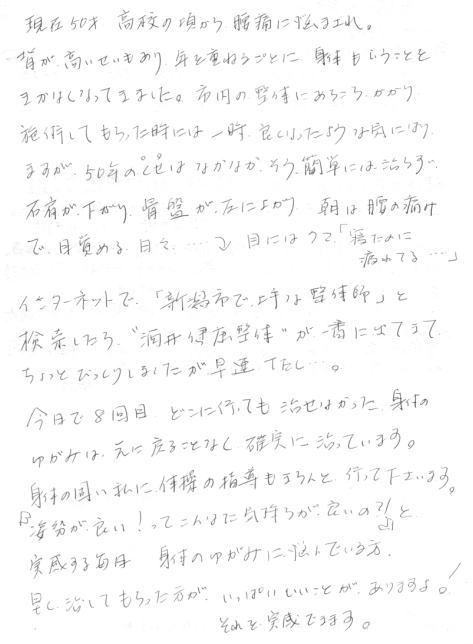 現在50才 高校の頃から腰痛に悩まされ。
背が、高いせいもあり、年を重ねるごとに 身体もいうことを
きかなくなってきました。市内の整体にあちこち かかり
施術してもらった時には 一時 良くなったような気になり
ますが、50年のくせはなかなか、そう簡単には治らず
右肩が、下がり、骨盤が、左によがり 朝は腰の痛み
で、目覚める日々、…… 目にはクマ「寝たのに
疲れてる…」
インターネットで、「新潟市で、上手な整体師」と
検索したら、"酒井健康整体"が一番に出てきて
ちょっとびっくりしましたが早速TEL…。
今日で8回目 どこに行っても治せなかった、身体の
ゆがみは、元に戻ることなく確実に治っています。
身体の固い私に、体操の指導もきちんと行って下さいます。
「姿勢が、良い!ってこんなに気持ちが、良いの?!」と
実感する毎日 身体のゆがみに悩んでいる方、
早く治してもらった方が、いっぱいいいことが、ありますよ。!
それを実感できます。